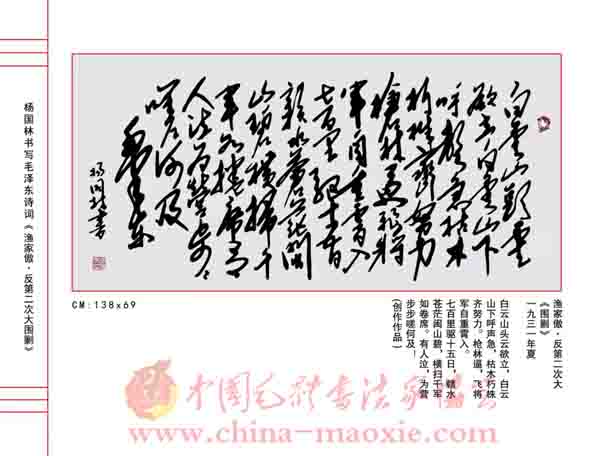 白雲山頭雲
欲立白雲山下
呼聲急枯木
朽株齊努力
槍林逼飛將
軍自重霄入
七百里驅十五日
贛水蒼茫閩
山碧橫掃千
軍如捲席有
人泣為營步步
嗟何及
毛泽东
杨国林書
杨国林书写毛泽东诗词《渔家傲·反第二次大围剿》
CM:138x69
渔家傲·反第二次大
《围剿》
一九三一年夏
白云山头云欲立，白云
山下呼声急，枯木朽株
齐努力。枪林逼，飞将
军自重霄入。
七百里驱十五日，赣水
苍茫闽山碧，横扫千军
如卷席。有人泣，为营
步步嗟何及！
(创作作品)
中国毛体书法家协会
www.china-maoxie.com